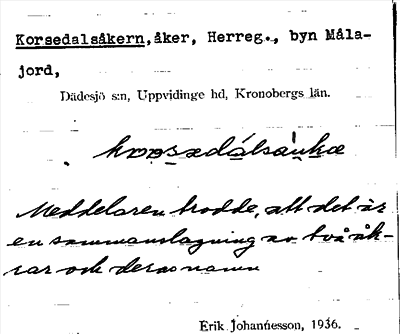 Korsedalsåkern, åker, Herreg., byn Måla-
jord,
Dädesjö s:n, Uppvidinge hd, Kronobergs län.
Meddelaren trodde, att det är
en sammanslagning av två åk-
rar och deras namn
Erik Johannesson, 1936.